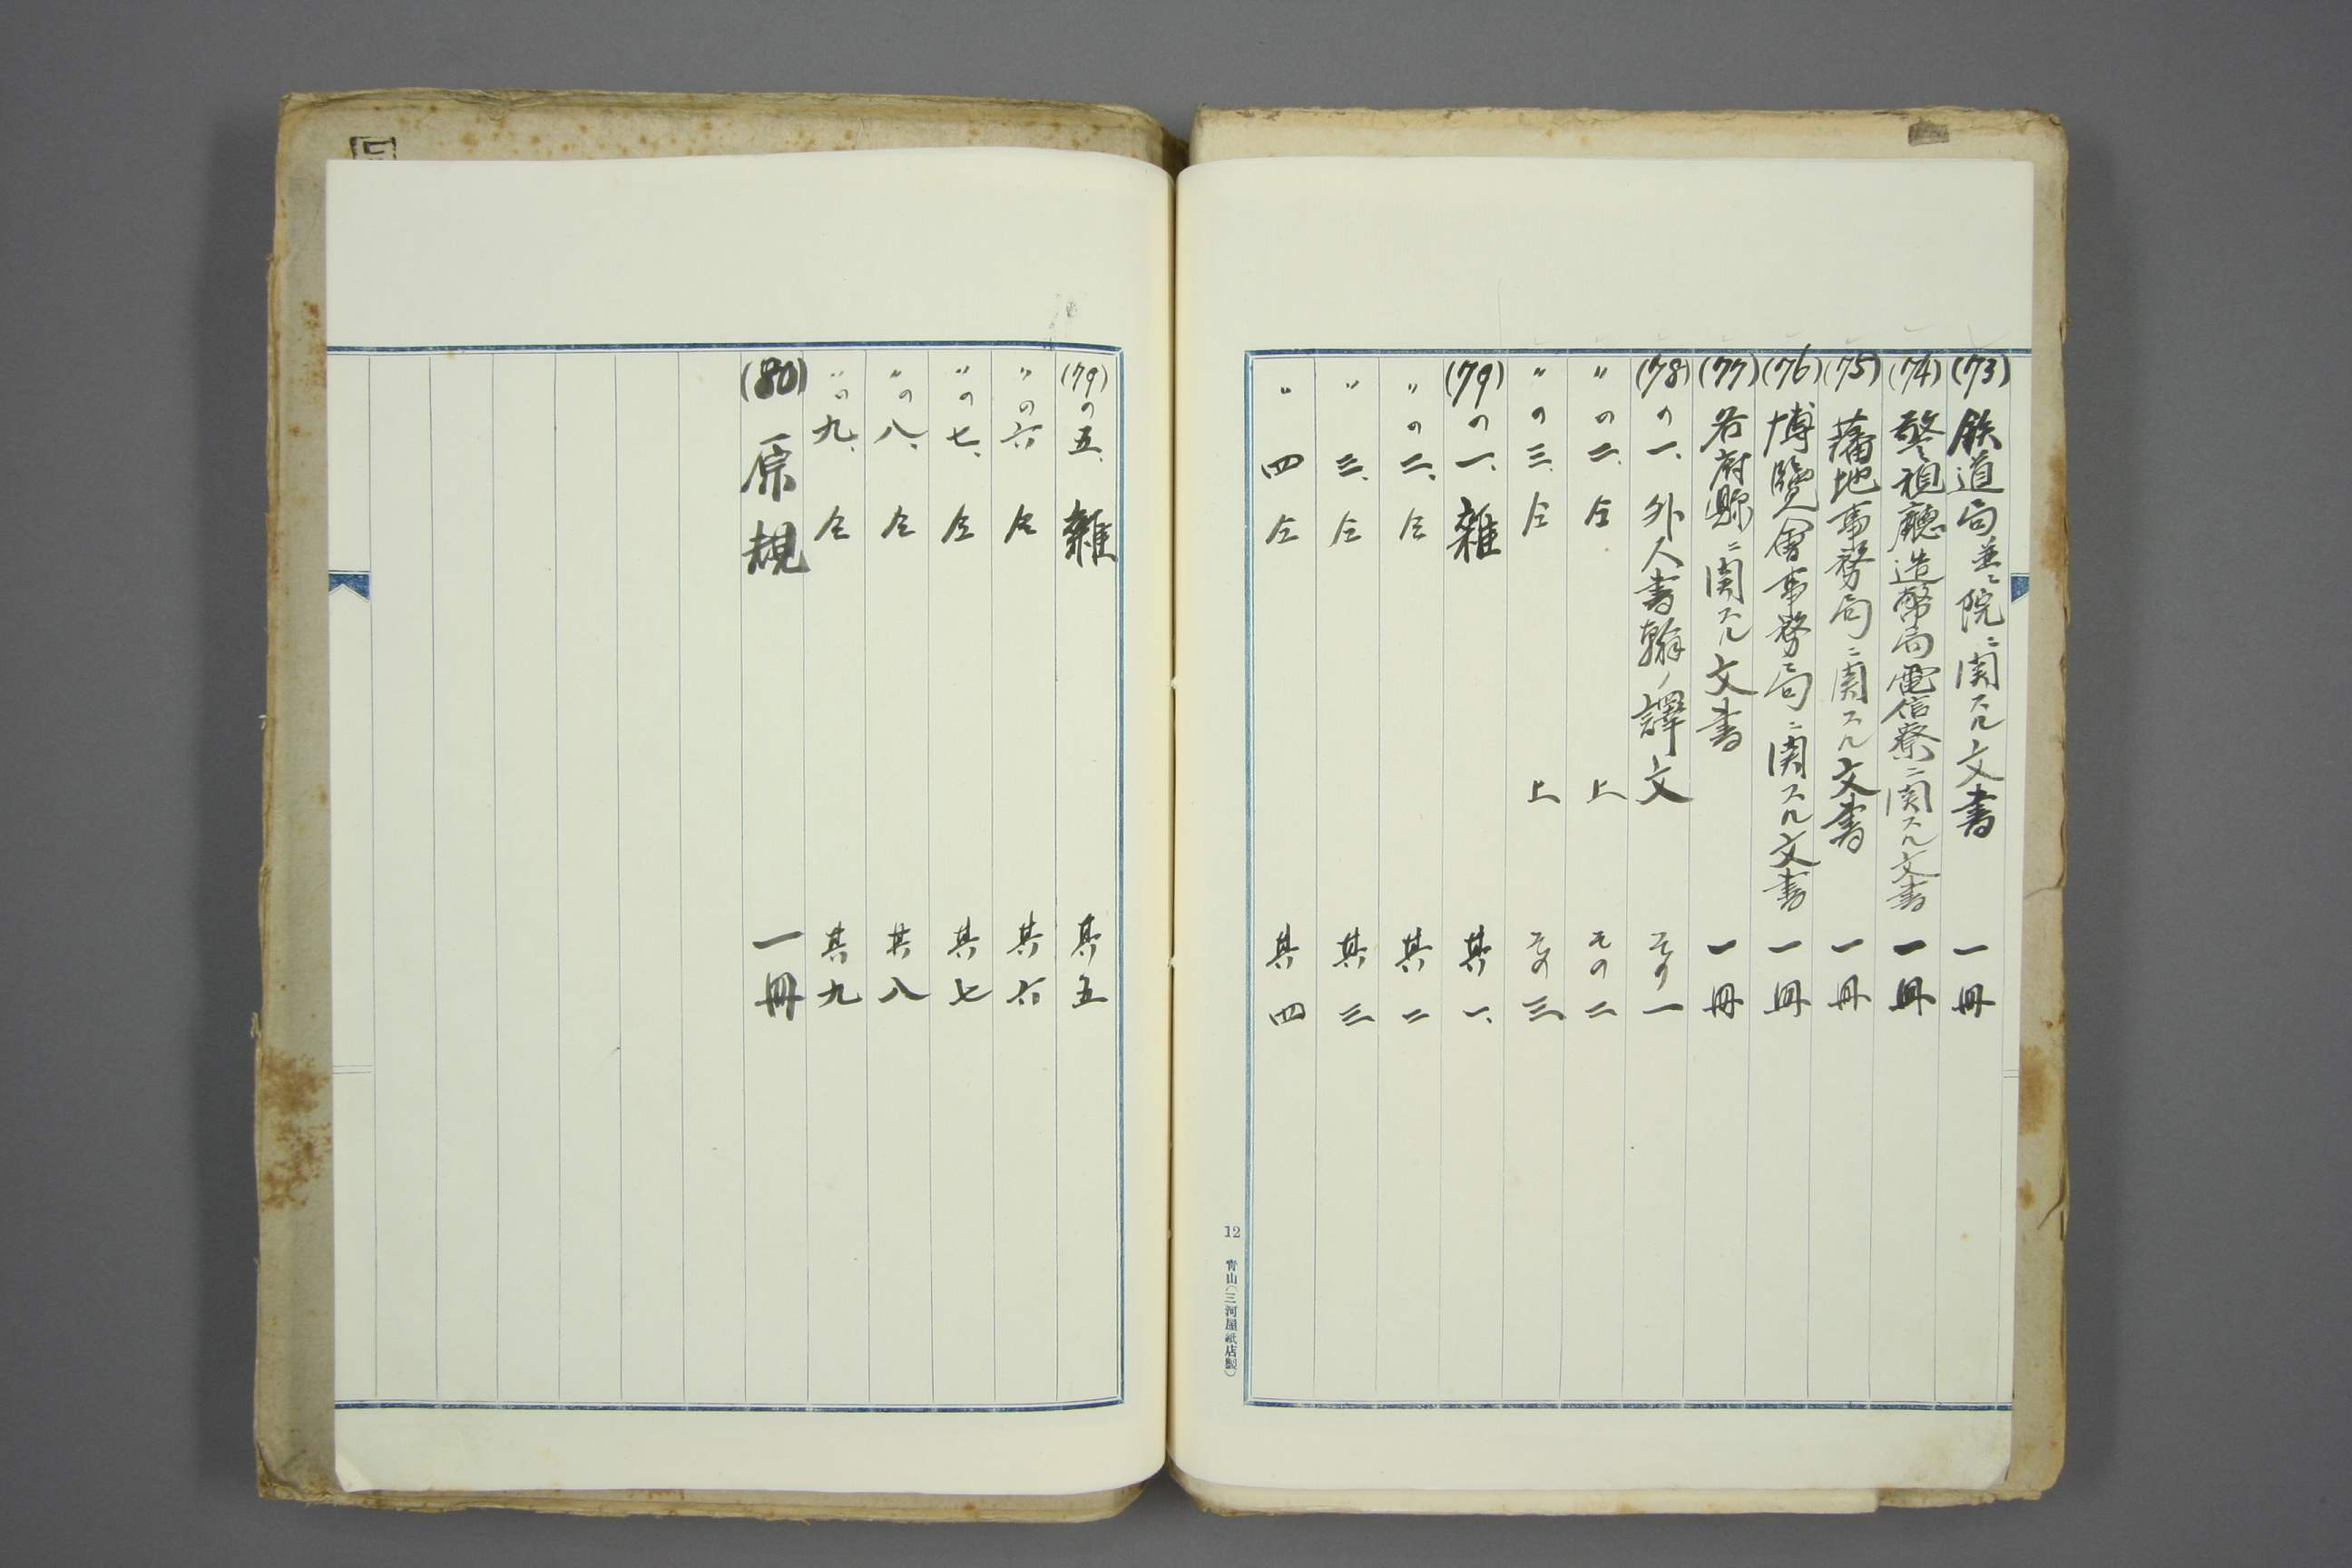 (73) 鉄道局並ニ院ニ関スル文書 一冊
(74) 警視廳造幣局電信寮ニ関スル文書 一冊
(75) 蕃地事務局ニ関スル文書 一冊
(76) 博覽會事務局ニ関スル文書 一冊
(77) 各府縣ニ関スル文書 一冊
(78)の一、外人書翰ノ譯文 その一
〃の二、仝上 その二
〃の三、仝上 その三
(79)の一、雜 其一、
〃の二、仝 其二
〃 三、仝 其三
〃 四 仝 其四
12 青山(三河屋紙店製)
(79)の五、雜 其五
〃の六 仝 其六
〃の七、仝 其七
〃の八、仝 其八
〃の九、仝 其九
(80) 原規 一冊